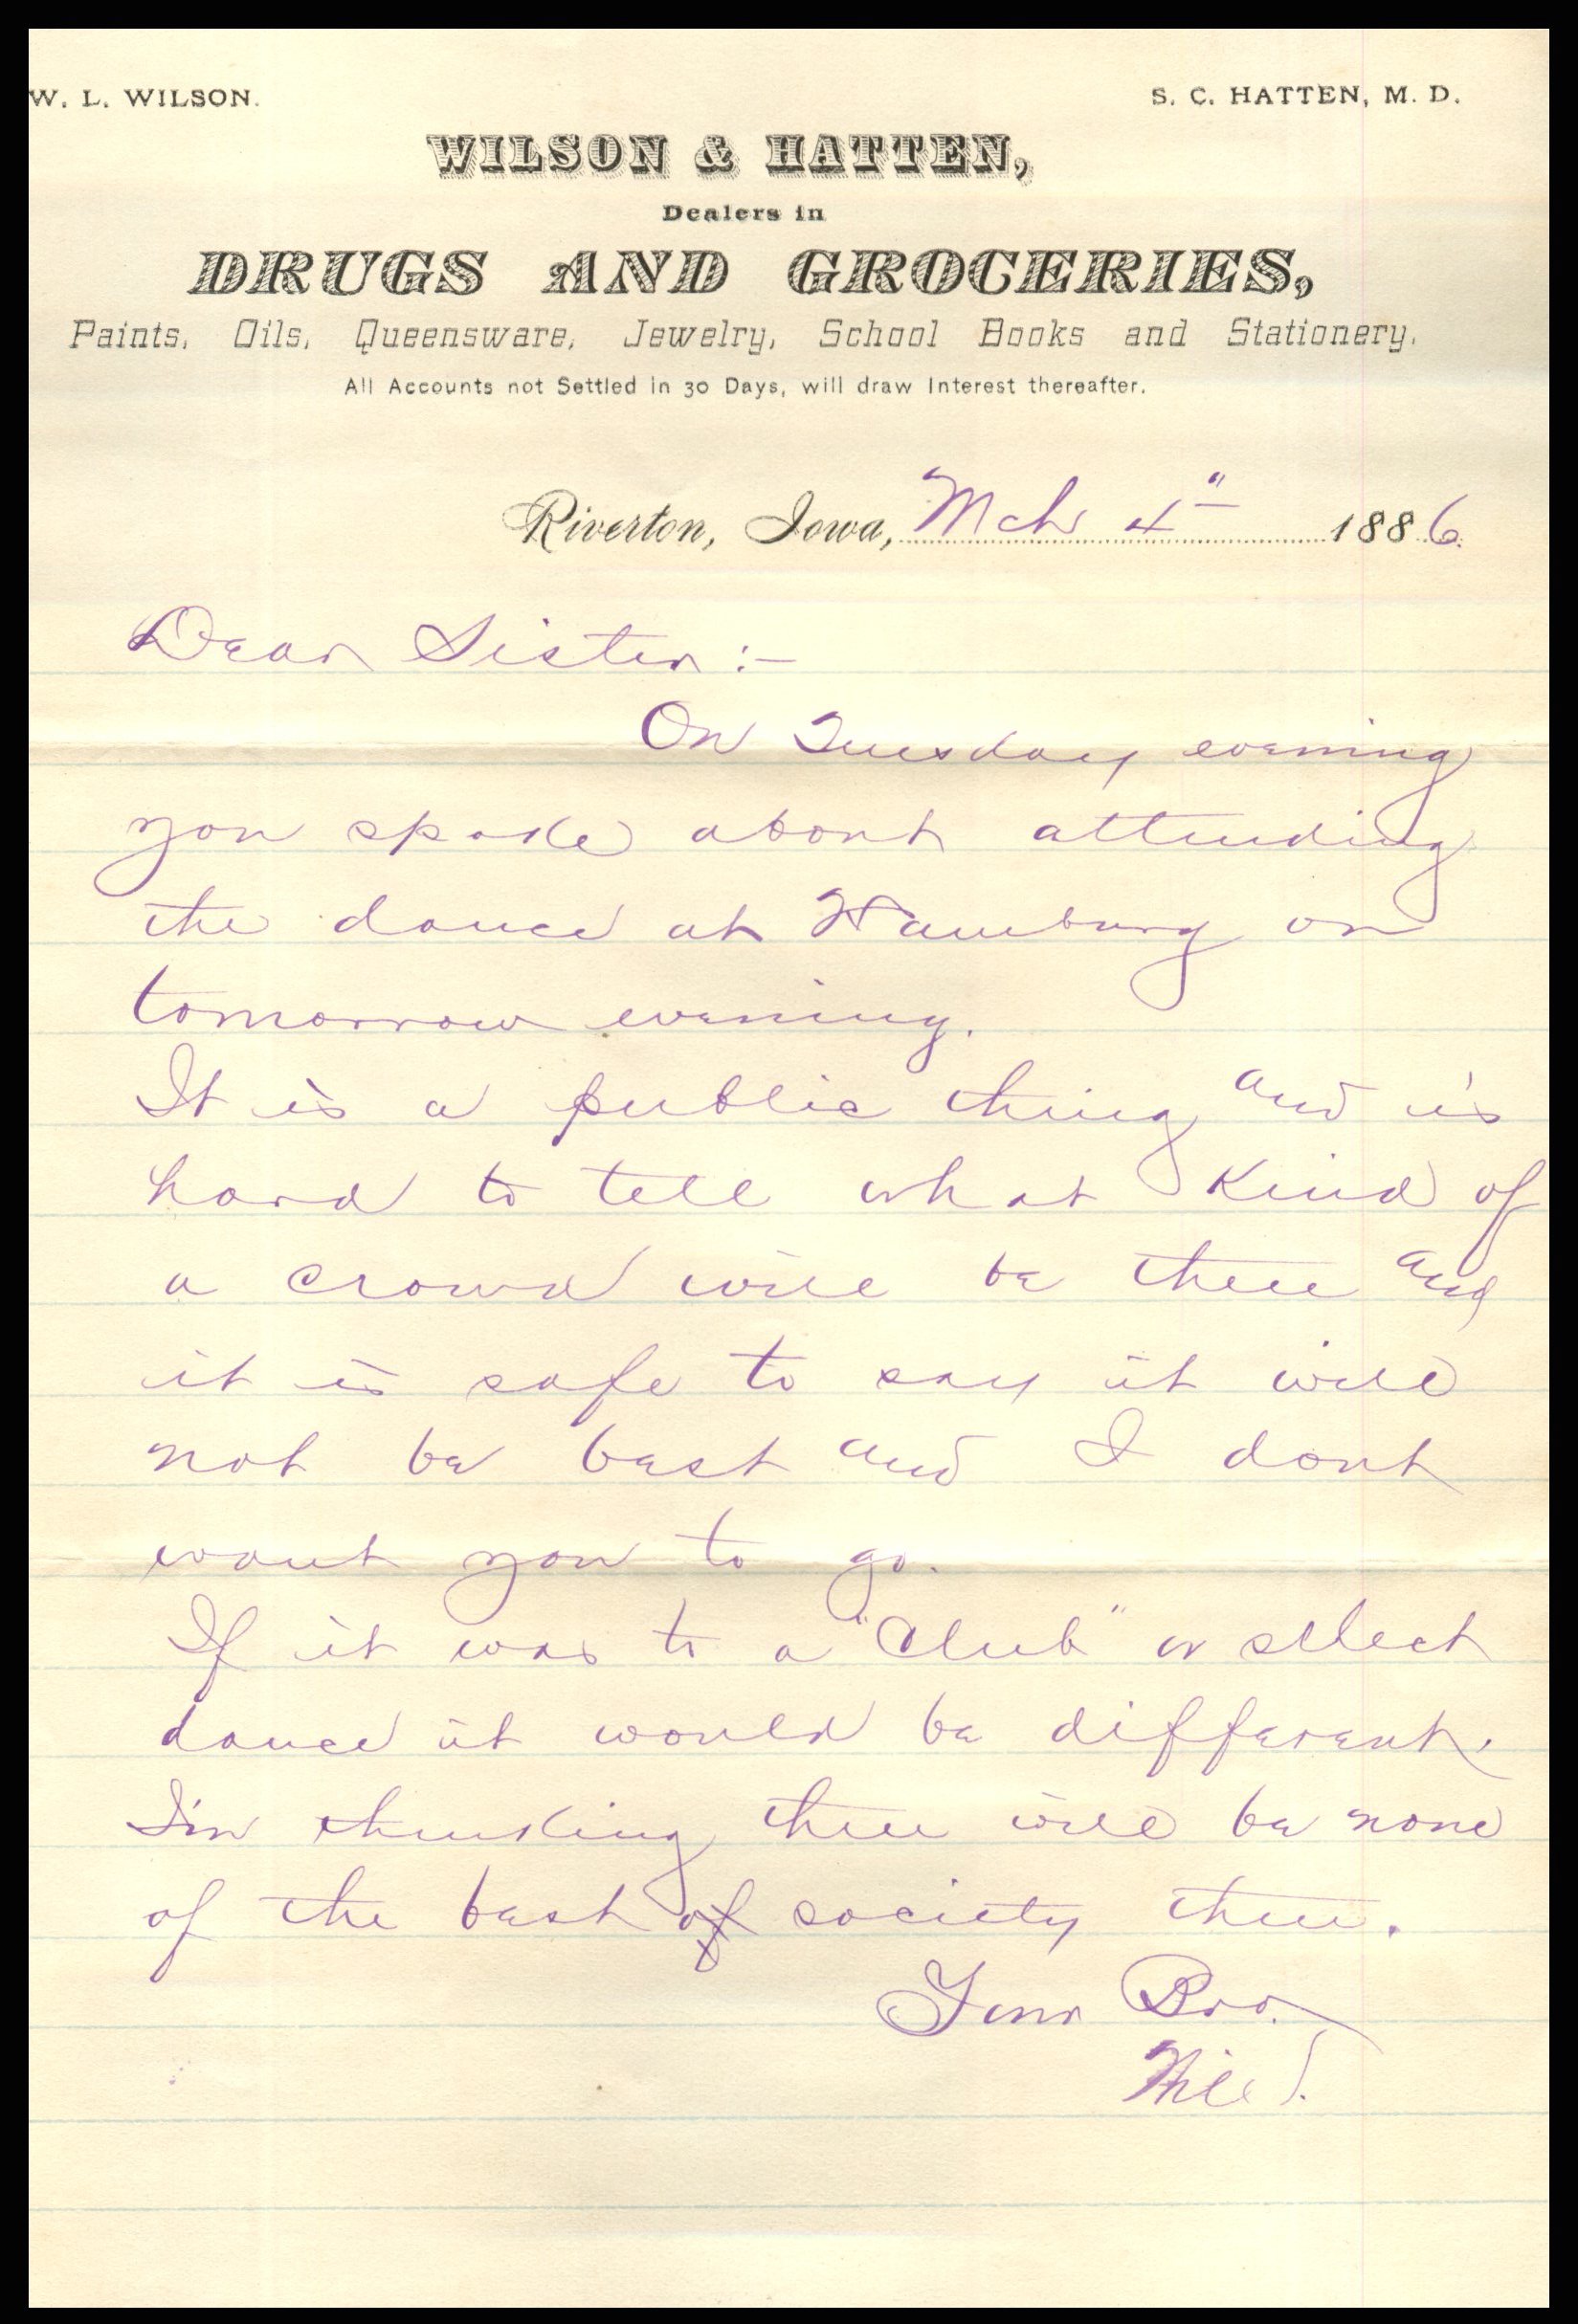 W. L. WILSON. S. C. HATTEN, M. D.
WILSON & HATTEN,
Dealers in
DRUGS AND GROCERIES,
Paints, Oils, Queensware, Jewelry, School Books and Stationery.
All Accounts not Settled in 30 Days, will draw Interest thereafter.
Riverton, Iowa, Mch 4" 1886.
Dear Sister :-
On Tuesday evening
you spoke about attending
the dance at Hamburg on
tomorrow evening.
It is a public thing and is
hard to tell what kind of
a crowd will be there and
it is safe to say it will
not be best and I dont
want you to go.
If it was to a "Club" or select
dance it would be different.
I'm thinking there will be none
of the best of society there.
Your Bro.
Will.